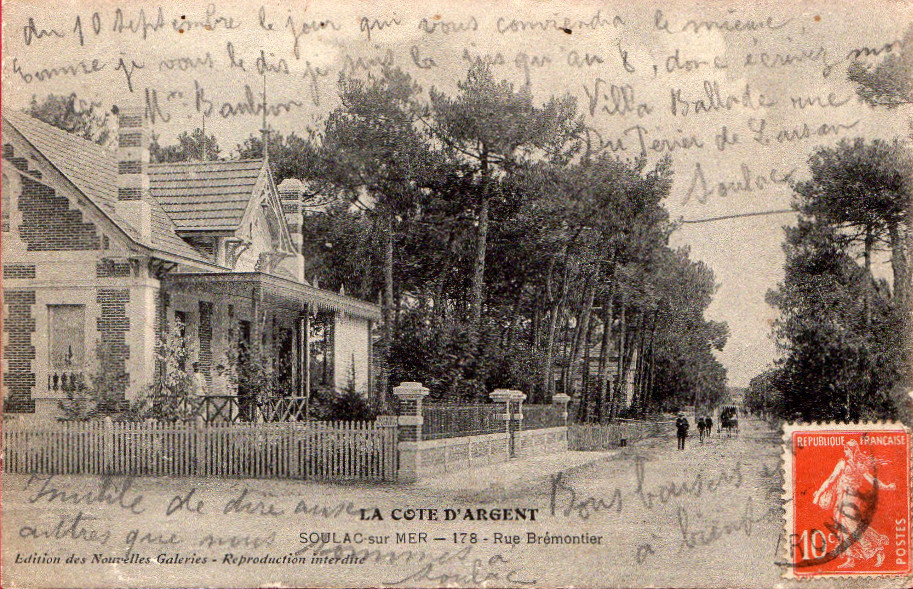 du 10 Septembre le jour qui vous conviendra le mieux,
Comme je vous le dis je suis la jusqu'au 8, donc écrivez moi
Mme Baubion
Villa Ballade rue
Du Soulac
LA COTE D'ARGENT
SOULAC-sur MER — 178 - Rue Brémontier
Edition des Nouvelles Galeries - Reproduction interdite
Inutile de dire aux
autres que nous sommes à
Soulac
Bons baisers
à bientôt
REPUBLIQUE FRANÇAISE
10c
POSTES